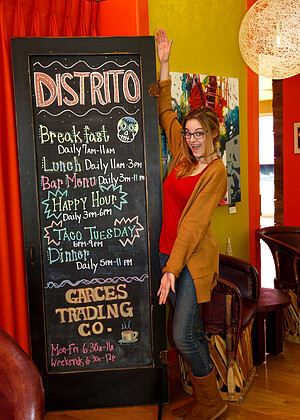 DISTRITO
Breakfast
Daily 7am-11am
Lunch Daily 11am-3pm
Bar Menu Daily 3pm-11pm
HAPPY HOUR
Daily 3pm-6pm
TACO TUESDAY
6pm-9pm
Dinner
Daily 5pm-11pm
GARCES
TRADING
CO.
Mon-Fri 6:30a-11a
Weekends 6:30a-12p